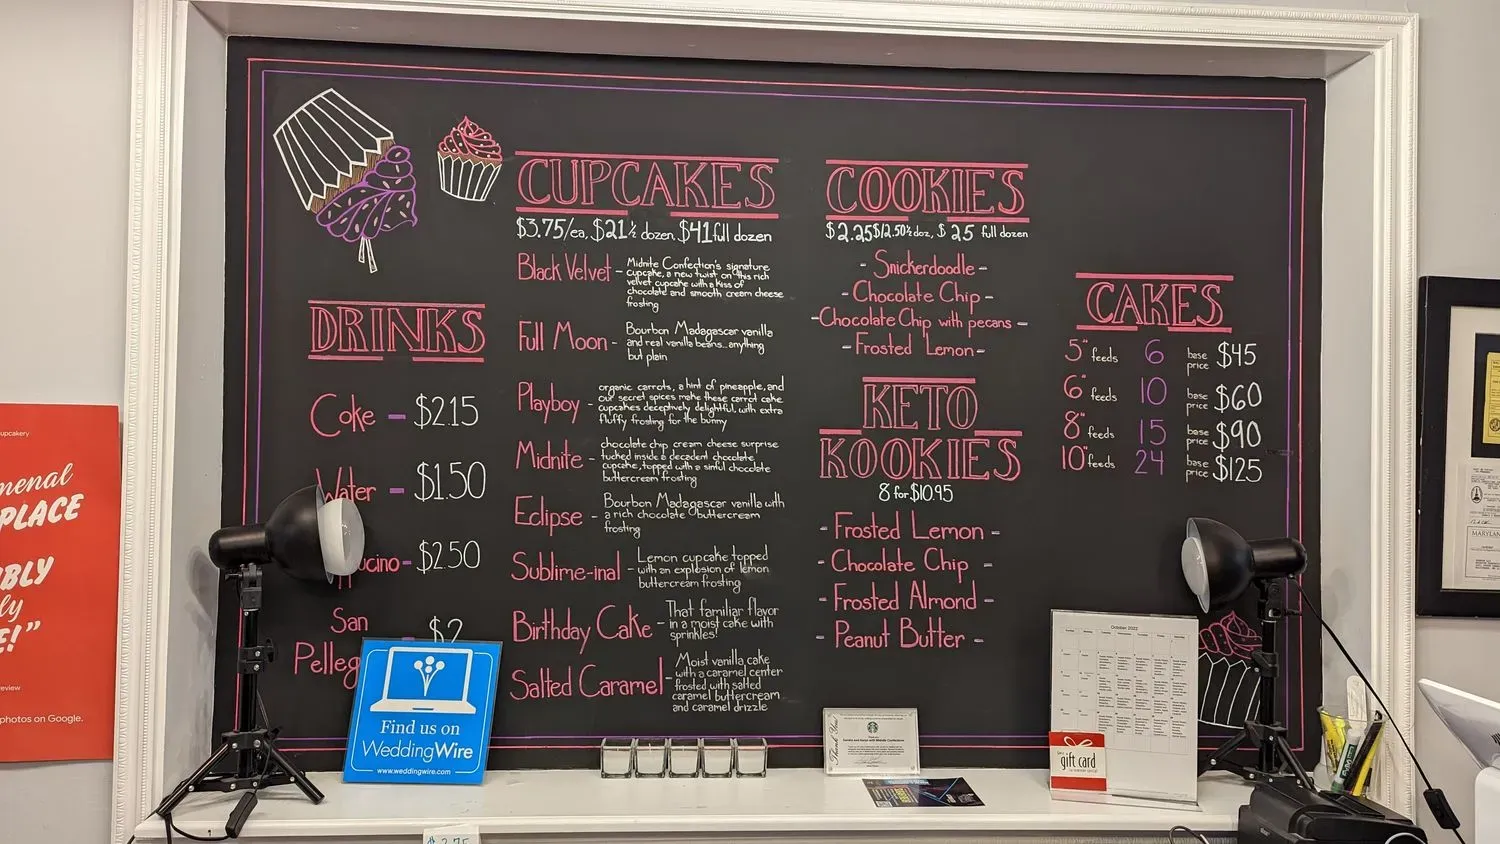 CUPCAKES
$3.75/ea, $21 ½ dozen, $41 full dozen
Black Velvet - Midnite Confection's signature
cupcake, a new twist on this rich
velvet cupcake with a kiss of
chocolate and smooth cream cheese
frosting
Full Moon - Bourbon Madagascar vanilla
and real vanilla beans...anything
but plain
Playboy - organic carrots, a hint of pineapple, and
our secret spices make these carrot cake
cupcakes deceptively delightful, with extra
fluffy frosting for the bunny
Midnite - chocolate chip cream cheese surprise
tucked inside a decadent chocolate
cupcake, topped with a sinful chocolate
buttercream frosting
Eclipse - Bourbon Madagascar vanilla with
a rich chocolate buttercream
frosting
Sublime-inal - Lemon cupcake topped
with an explosion of lemon
buttercream frosting
Birthday Cake - That familiar flavor
in a moist cake with
sprinkles!
Salted Caramel - Moist vanilla cake
with a caramel center
frosted with salted
caramel buttercream
and caramel drizzle
DRINKS
Coke - $2.15
Water - $1.50
ucino - $2.50
San
Pelleg - $2
COOKIES
$2.25 $12.50 ½ doz, $25 full dozen
- Snickerdoodle -
- Chocolate Chip -
- Chocolate Chip with pecans -
- Frosted Lemon -
KETO
KOOKIES
8 for $10.95
- Frosted Lemon -
- Chocolate Chip -
- Frosted Almond -
- Peanut Butter -
CAKES
5" feeds 6 base price $45
6" feeds 10 base price $60
8" feeds 15 base price $90
10" feeds 24 base price $125
upcakery
menal
PLACE
BLY
ly
E!"
review
photos on Google.
Find us on
WeddingWire
www.weddingwire.com
Thank You!
October 2022
gift card
MARYLAN
$3.75